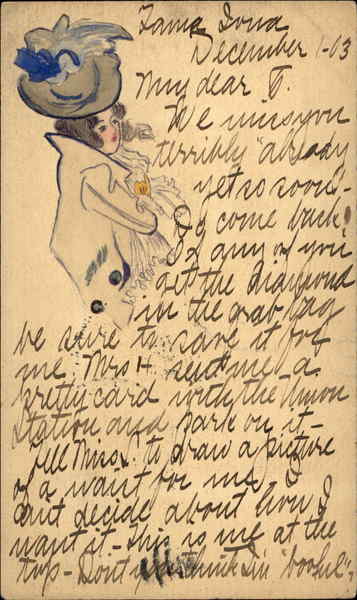 Tama Iowa
December 1-03
My dear T.
We miss you
terribly "already
yet so soon" -
Do come back.
If any of you
get the diamond
in the grab bag
be sure to save it for
me. Mrs H. sent me a
pretty card with the Union
Station and park on it -
Tell Miss S. to draw a picture
of a waist for me, I
can't decide about how I
want it - This is me at the
top - Don't you think I'm "booful" -